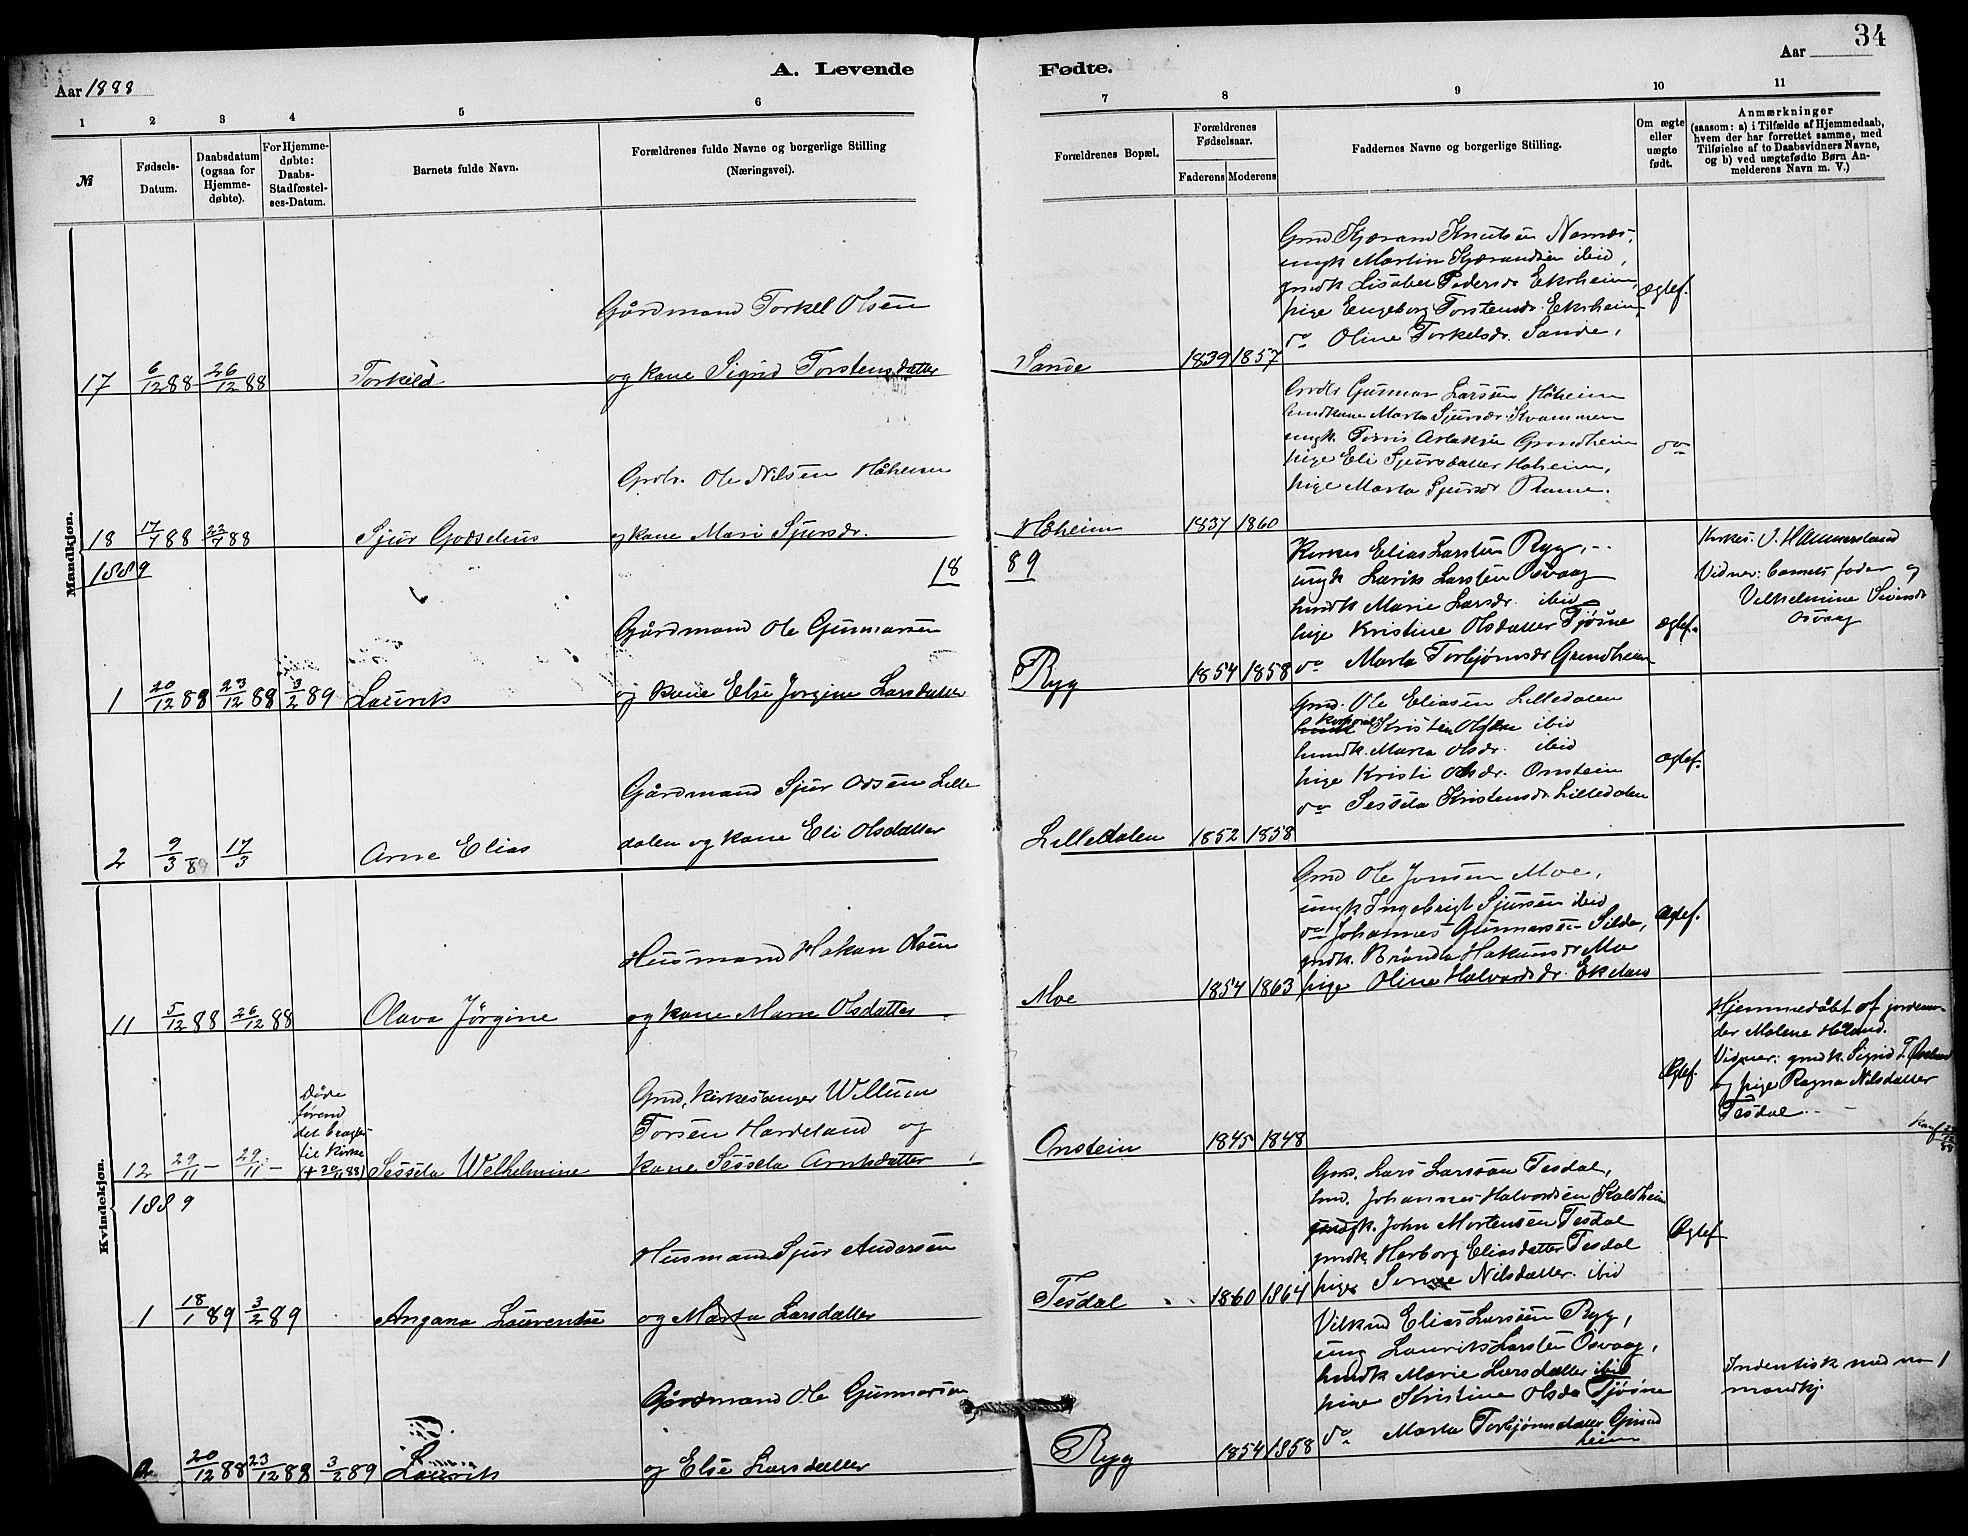 34
A. Levende
Fødte.
Aar 1888
Aar
1 2 3 4 5 6 7 8 9 10 11
№
Fødsels-
Datum.
Daabsdatum
(ogsaa for
Hjemme-
døbte).
For Hjemme-
døbte:
Daabs-
Stadfæstel-
ses-Datum.
Barnets fulde Navn.
Forældrenes fulde Navne og borgerlige Stilling
(Næringsvei).
Forældrenes Bopæl.
Forældrenes
Fødselsaar.
Faderens Moderens
Faddernes Navne og borgerlige Stilling.
Om ægte
eller
uægte
født.
Anmærkninger
(saasom: a) i Tilfælde af Hjemmedaab,
hvem der har forrettet samme, med
Tilføielse af to Daabsvidners Navne,
og b) ved uægtefødte Børn An-
melderens Navn m. V.)
Mandkjøn.
17 6/12 88 26/12 88 Torkild
Gårdmand Torkel Olsen
og kone Sigrid Torstensdatter
Sande 1839 1857
Gmd Kjørand Knutsen
ungk Martin Kjørandsen ibid,
gmdk Lisabet Pedersdr Ekrheim,
pige Engeborg Torstensdr. Ekrheim,
do Oline Torkelsdr. Sande,
Ægtef.
18 17/7 88 22/7 88 Sjur Godschus
Grdbr. Ole Nilsen Håheim
og kone Mari Sjursdr.
Håheim 1837 1860
Grdbr Gunnar Larsen Håheim
husmdkone Marta Sjursdr. Kvammen
ungk. Tørris Aslaksen Grindheim
pige Eli Sjursdatter Håheim,
pige Marta Sjursdr
do
1889 18 89
1 20/12 88 23/12 88 3/2 89 Laurits
Gårdmand Ole Gunnarsen
og kone Else Jorgine Larsdatter
Ryg 1854 1858
Kirkes Elias Larsen Ryg,
ungk Laurits Larsen Osvaag
husmdk Marie Larsdr. ibid
pige Kristine Olsdatter Tjøsne
do Marta Torbjørnsdr Grindheim
ægtef.
Kirkes. J. Hammersland
Vidner: barnets fader og
Vilhelmine
Osvaag
2 9/3 89 17/3 Arne Elias
Gårdmand Sjur Olsen Lille
dalen og kone Eli Olsdatter
Lilledalen 1852 1858
Gmd. Ole Eliasen Lilledalen
korporal Kristen Olsen ibid
husmdk. Marta Olsdr. ibid
pige Kristi Olsdr. Onstein
do Sesselia Kristensdr. Lilledalen
ægtef.
Kvindekjøn.
11 5/12 88 26/12 88 Olava Jørgine
Husmand Håkon Olsen
og kone Marie Olsdatter
Moe 1854 1863
Gmd Ole Jonsen Moe,
ungk Ingebrigt Sjursen ibid
do Johannes Gunnarsen Silde,
gmdk. Brønla Håkunsdr Moe
pige Oline Halvardsdr.
Ægtef.
12 29/11 - 29/11 -
Døde
førend
det bragtes
til Kirke
(+ 30/11 88)
Sessela Welhelmine
Gmd, Kirkesanger Willum
Torsen Hardeland og
kone Sessela Arntsdatter
Onstein 1845 1848
Ægtef.
Hjemmedåbt af jordemo-
der Malene Håland.
Vidner: gmdk. Sigrid T.
og pige Ragna Nilsdatter
Tesdal.
1889
1 18/1 89 3/2 89 Angana Laurentse
Husmand Sjur Andersen
og Marta Larsdatter
Tesdal 1860 1864
Gmd. Lars Larsson Tesdal,
hmd. Johannes Halvordsen Kaldheim
ungk. John Mortensen Tesdal
gmdk. Herborg Eliasdatter Tesdal
pige Nilsdatter ibid
Ægtef
2 20/12 88 23/12 88 3/2 89 Laurits
Gårdmand Ole Gunnarsen
og Else Larsdatter
Ryg 1854 1858
Elias Larsen Ryg,
ung Laurits Larsen Osvaag,
husmdk Marie Larsdatter ibid
pige Kristine Olsda Tjøsne
do Marta Torbjørnsdatter Grind
heim
Indentisk med no 1
mandkj